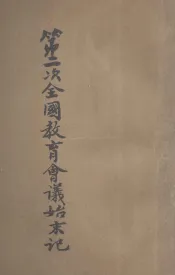 第二次全國教育會議始末记